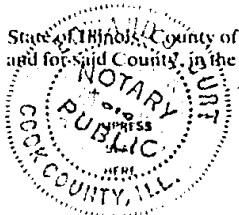 State of Illinois, County of
and for said County, in the
COURT
NOTARY
PUBLIC
IMPRESS
HERE
COOK COUNTY, ILL.